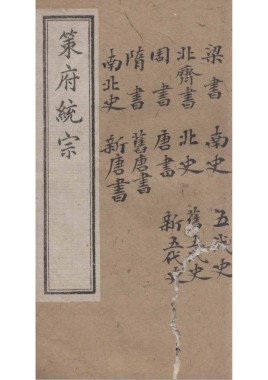 梁書 南史 五代史
北齊書 北史 舊五代史
周書 唐書 新五代史
隋書 舊唐書
南北史 新唐書
策府統宗